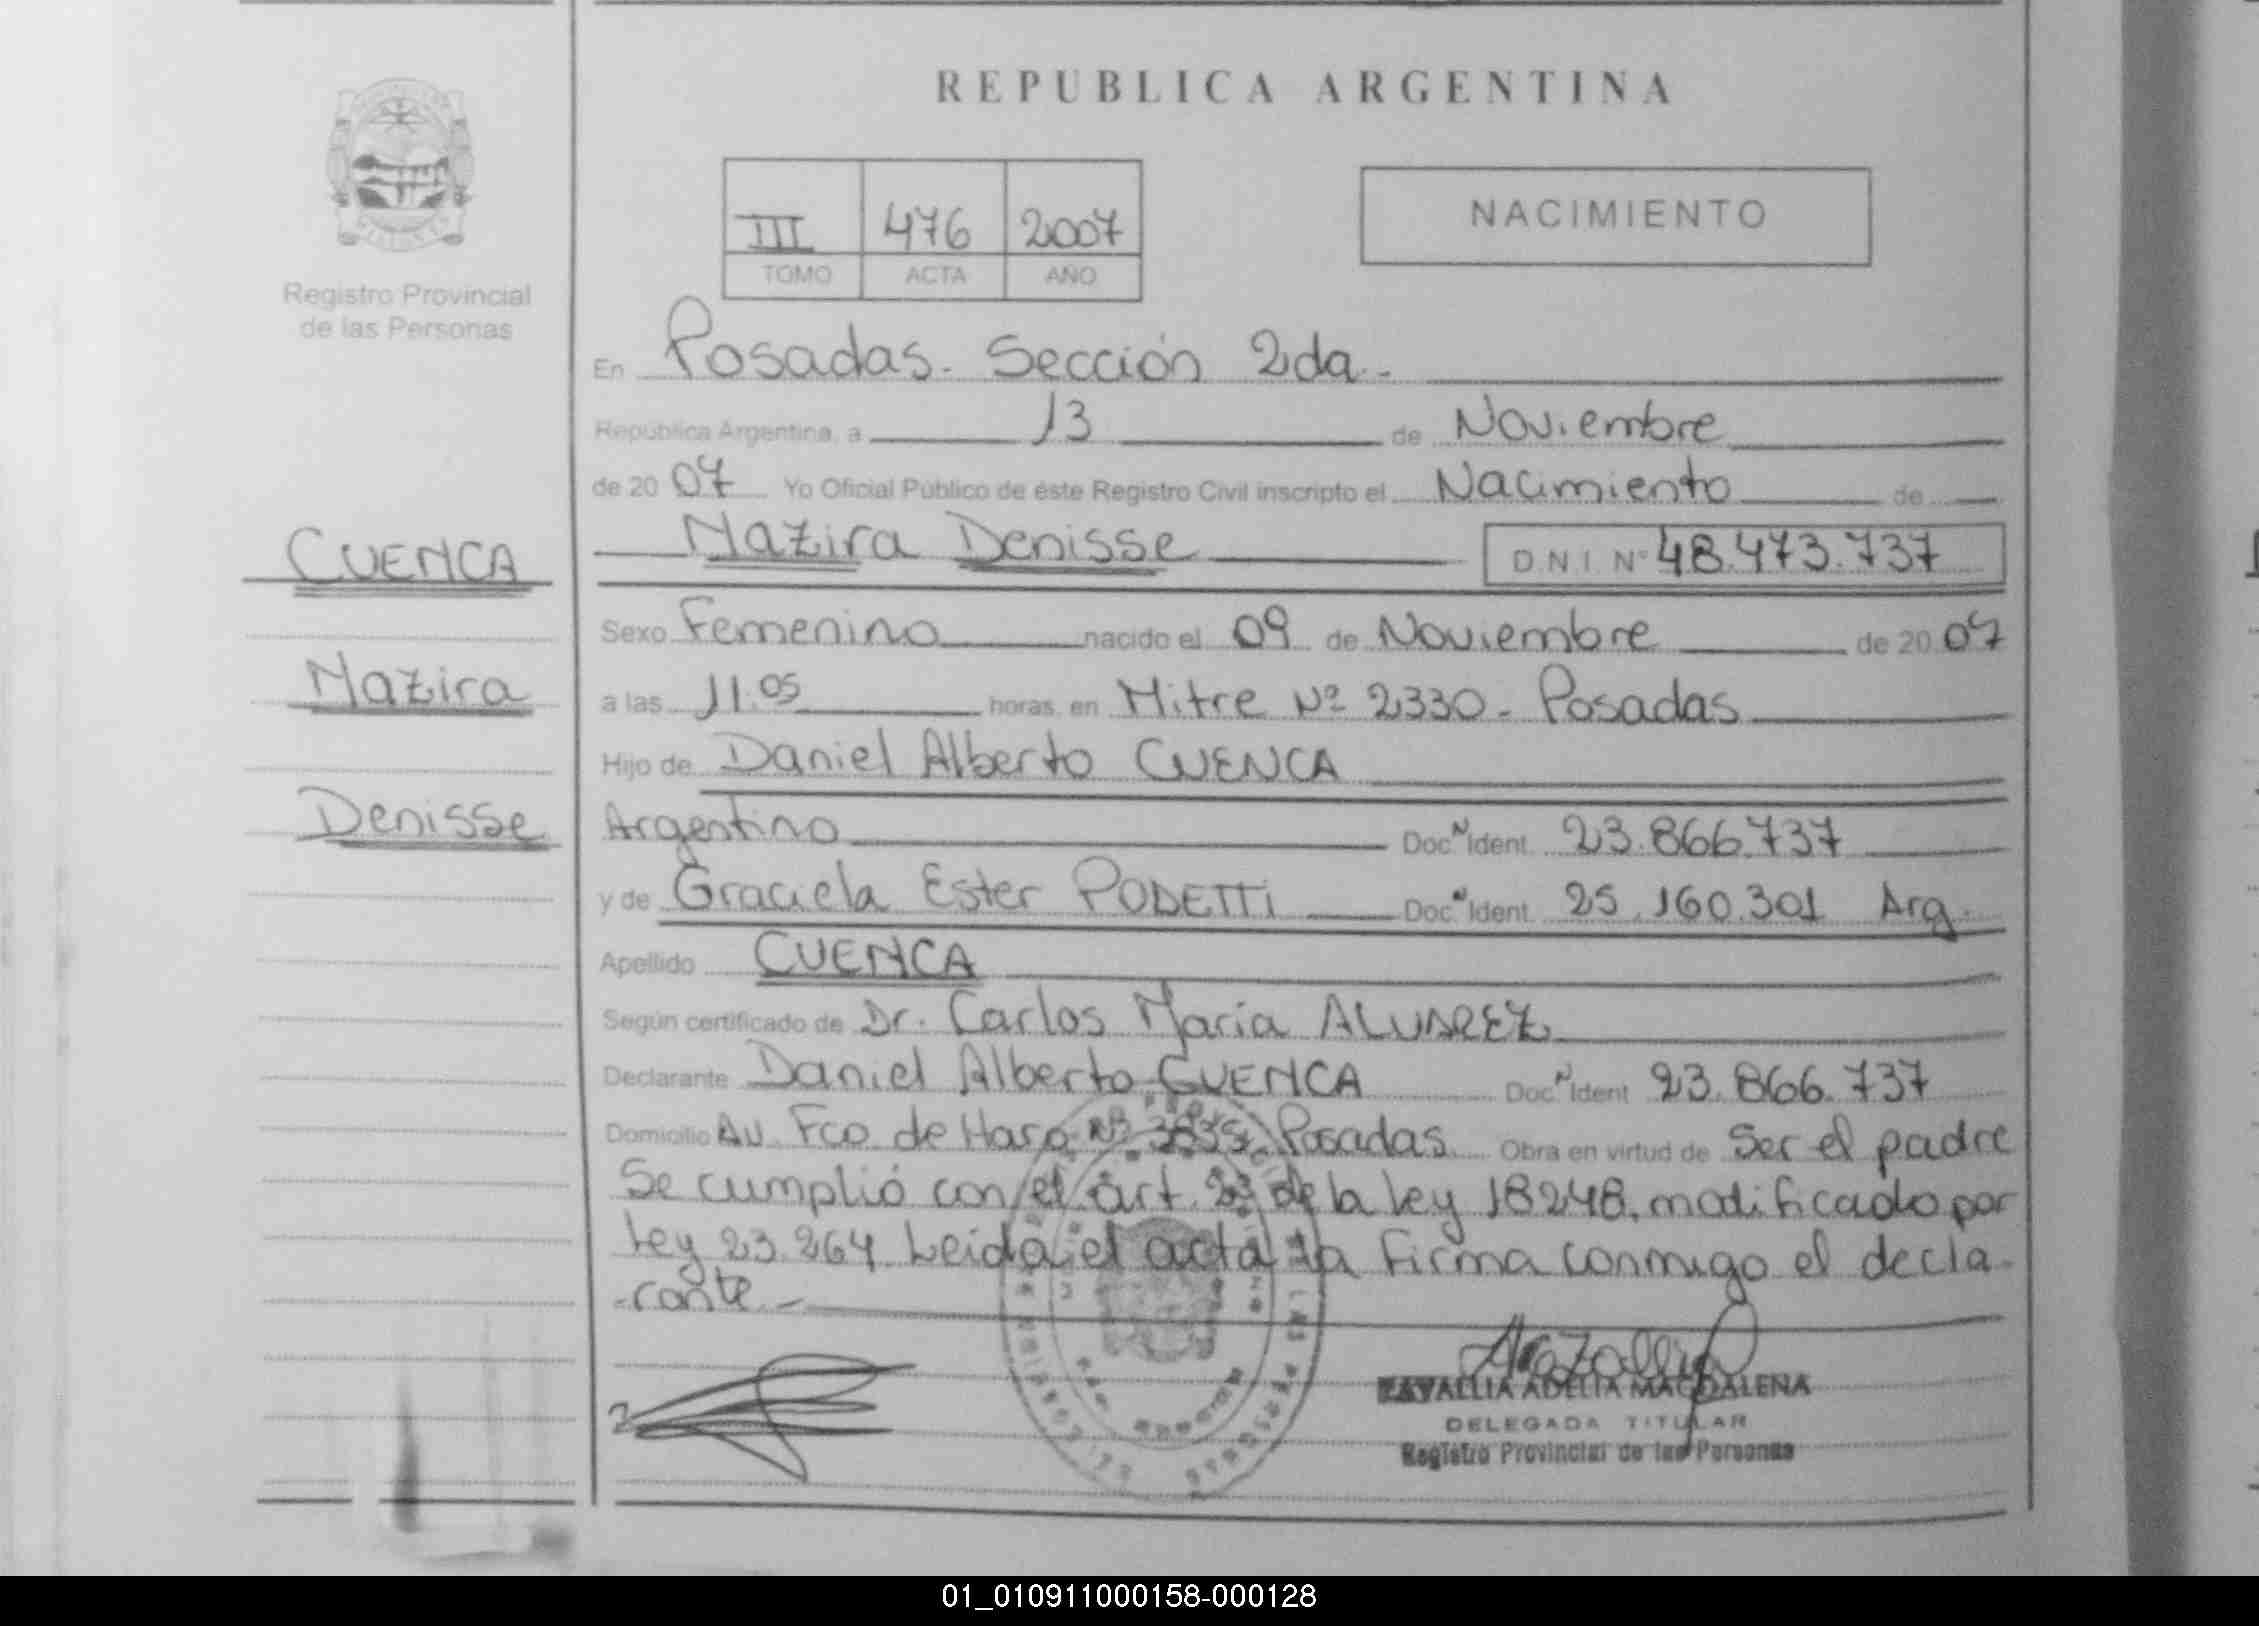 REPUBLICA ARGENTINA
NACIMIENTO
III 476 2007
TOMO ACTA AÑO
Registro Provincial
de las Personas
En Posadas. Sección 2da.
República Argentina, a 13 de Noviembre
de 2007 Yo Oficial Público de éste Registro Civil inscripto el Nacimiento de
Nazira Denisse D.N.I. Nº 48.473.737
CUENCA
Sexo Femenino nacido el 09 de Noviembre de 2007
Nazira
a las 11.05 horas, en Mitre Nº 2330 - Posadas
Hijo de Daniel Alberto CUENCA
Denisse
Argentino Doc. Ident. 23.866.737
y de Graciela Ester PODETTI Doc. Ident. 25.160.301 Arg.
Apellido CUENCA
Según certificado de Dr. Carlos María ALVAREZ
Declarante Daniel Alberto CUENCA Doc. Ident 23.866.737
Domicilio Av. Fco de Haro Nº Posadas. Obra en virtud de Ser el padre
Se cumplió con el art. de la Ley 18248, modificado por
Ley 23.264 Leída el acta la firma conmigo el decla-
-rante.-
ADELIA MAGDALENA
DELEGADA TITULAR
Registro Provincial de las Personas
01_010911000158-000128